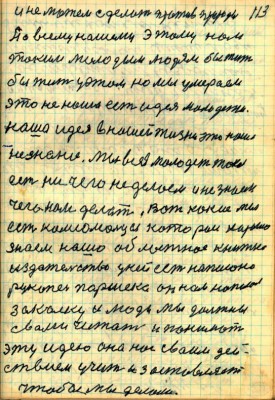 и не можем сделат против природы 113
По всему нашому этому нам
таким молодым людям бы жит
бы жит удтом но мы умераем
это не наша ест идея молодежи.
наша идея в нашей жизни это наше
незнание. Мы вся молодеж тоже
ест ни чего не делаем и не знаем
чего нам делат, Вот какие мы
ест комсомолцы которые хорошо
знаем нашо областное книжно
издателство у ней ест написано
рукопис он нам написал
закалку и люди мы должны
с вами читат и понимат
эту идею она нас своим дей-
ствием учит и заставляет
чтобы мы делали.